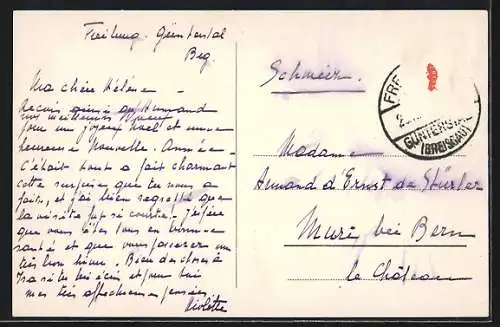 Freiburg - Günterstal
Beg.
Ma chère Hélène -
Reçois ainsi qu'Armand
nos meilleurs vœux
pour un joyeux Noël et une
heureuse Nouvelle - Année -
C'était tout a fait charmant
cette surprise que tu nous a
faite, et j'ai bien regretté que
la visite fut si courte - j'espère
que vous êtes tous en bonne
santé et que vous passerez un
très bon hiver. Bien des choses à
ta si tu lui écris et pour toi
mes très affectueuses pensées.
Violette
Schweiz.
FRE
GÜNTERSTAL
(BREISGAU)
Madame
Armand d'Ernst de Stürler
Muri bei Bern
le Château